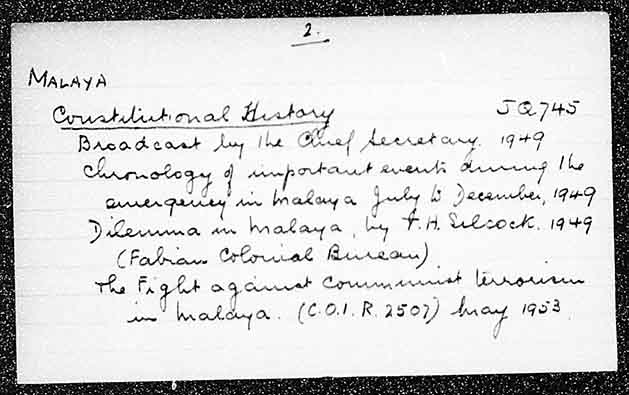 2.
MALAYA
Constitutional History JQ745
Broadcast by the Chief Secretary. 1949
Chronology of important events during the
emergency in Malaya July to December, 1949
Dilemma in Malaya, by T.H. Silcock. 1949
(Fabian Colonial Bureau)
The Fight against Communist terrorism
in Malaya. (C.O.I. R. 2507) May 1953.